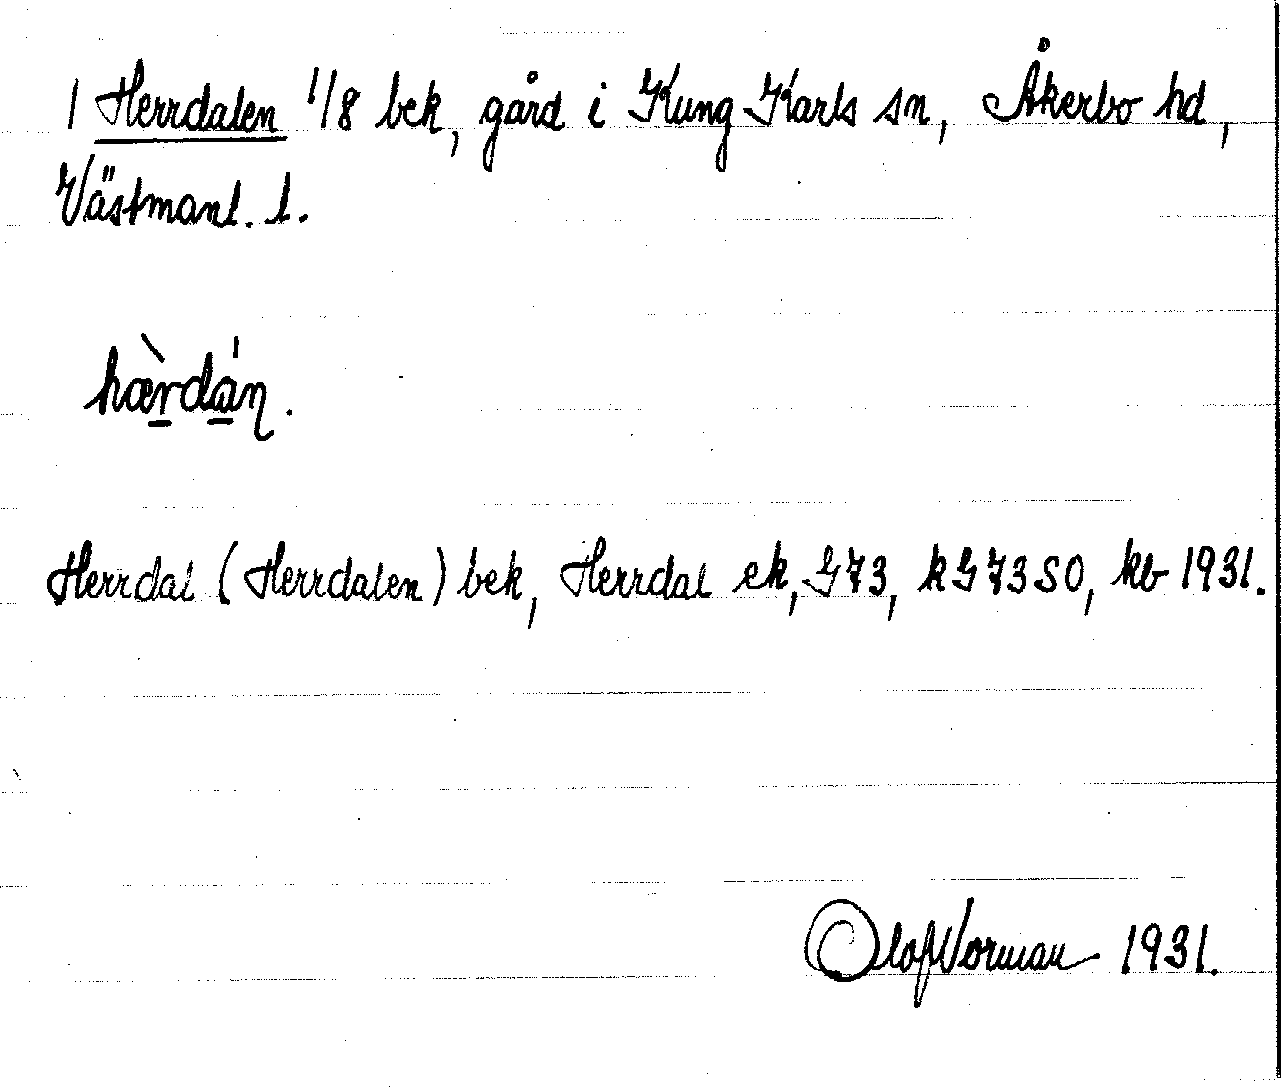 1 Herrdalen 1/8 bek, gård i Kung Karls sn, Åkerbo hd,
Västmanl. l.
hæ̀r̠dạ́n.
Herrdal (Herrdalen) bek, Herrdal ek, G73, kG73SO, kb 1931.
Olof Norman 1931.